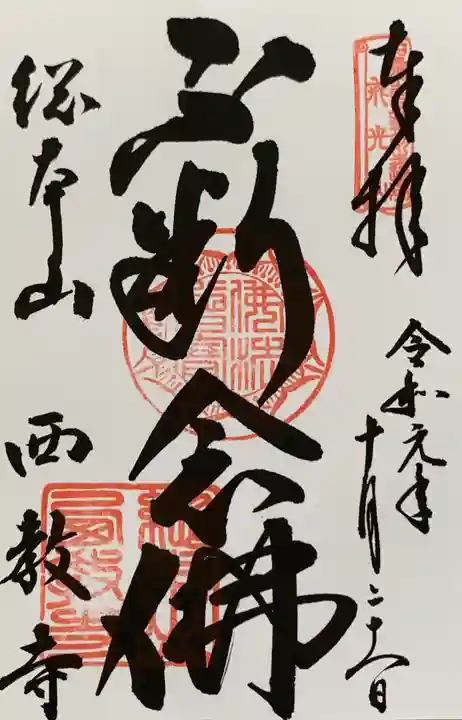 奉拝
令和元年
十月二十八日
不断念佛
総本山
西教寺